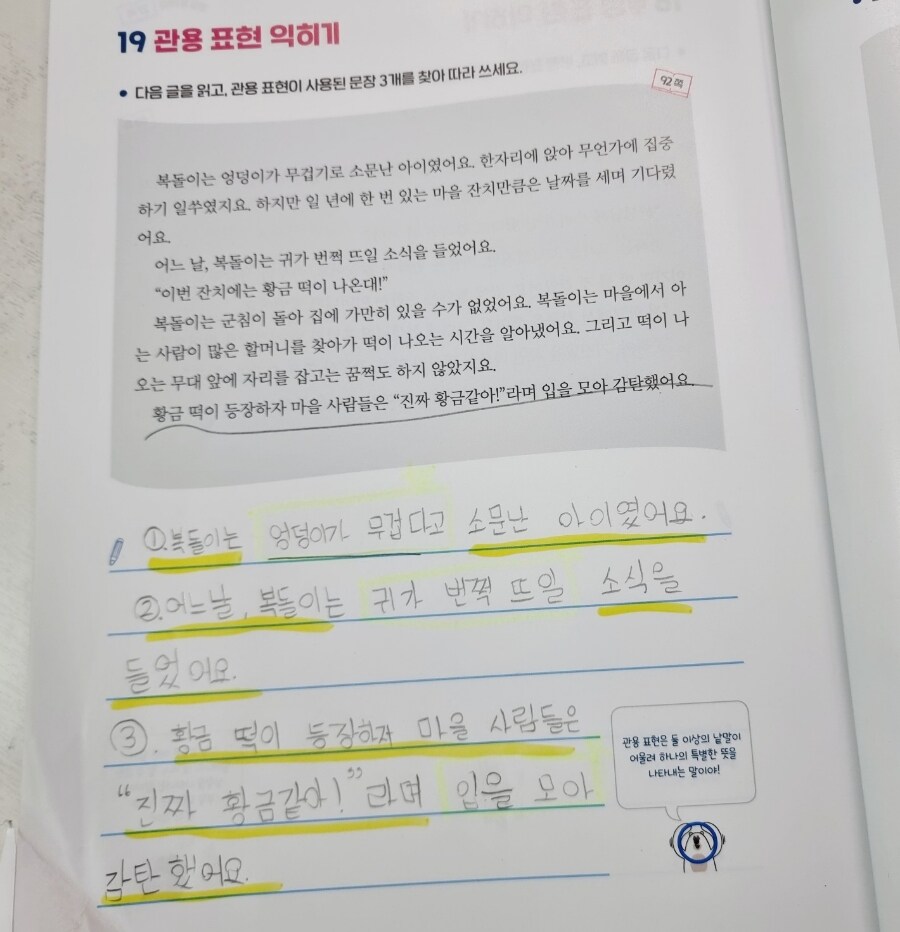 19 관용 표현 익히기
• 다음 글을 읽고, 관용 표현이 사용된 문장 3개를 찾아 따라 쓰세요.
92쪽
복돌이는 엉덩이가 무겁기로 소문난 아이였어요. 한자리에 앉아 무언가에 집중
하기 일쑤였지요. 하지만 일 년에 한 번 있는 마을 잔치만큼은 날짜를 세며 기다렸
어요.
어느 날, 복돌이는 귀가 번쩍 뜨일 소식을 들었어요.
“이번 잔치에는 황금 떡이 나온대!”
복돌이는 군침이 돌아 집에 가만히 있을 수가 없었어요. 복돌이는 마을에서 아
는 사람이 많은 할머니를 찾아가 떡이 나오는 시간을 알아냈어요. 그리고 떡이 나
오는 무대 앞에 자리를 잡고는 꿈쩍도 하지 않았지요.
황금 떡이 등장하자 마을 사람들은 “진짜 황금같아!”라며 입을 모아 감탄했어요.
①.복돌이는 엉덩이가 무겁다고 소문난 아이였어요.
②.어느날, 복돌이는 귀가 번쩍 뜨일 소식을
들었어요.
③. 황금 떡이 등장하자 마을 사람들은
“진짜 황금같아!”라며 입을 모아
감탄했어요.
관용 표현은 둘 이상의 낱말이
어울려 하나의 특별한 뜻을
나타내는 말이야!